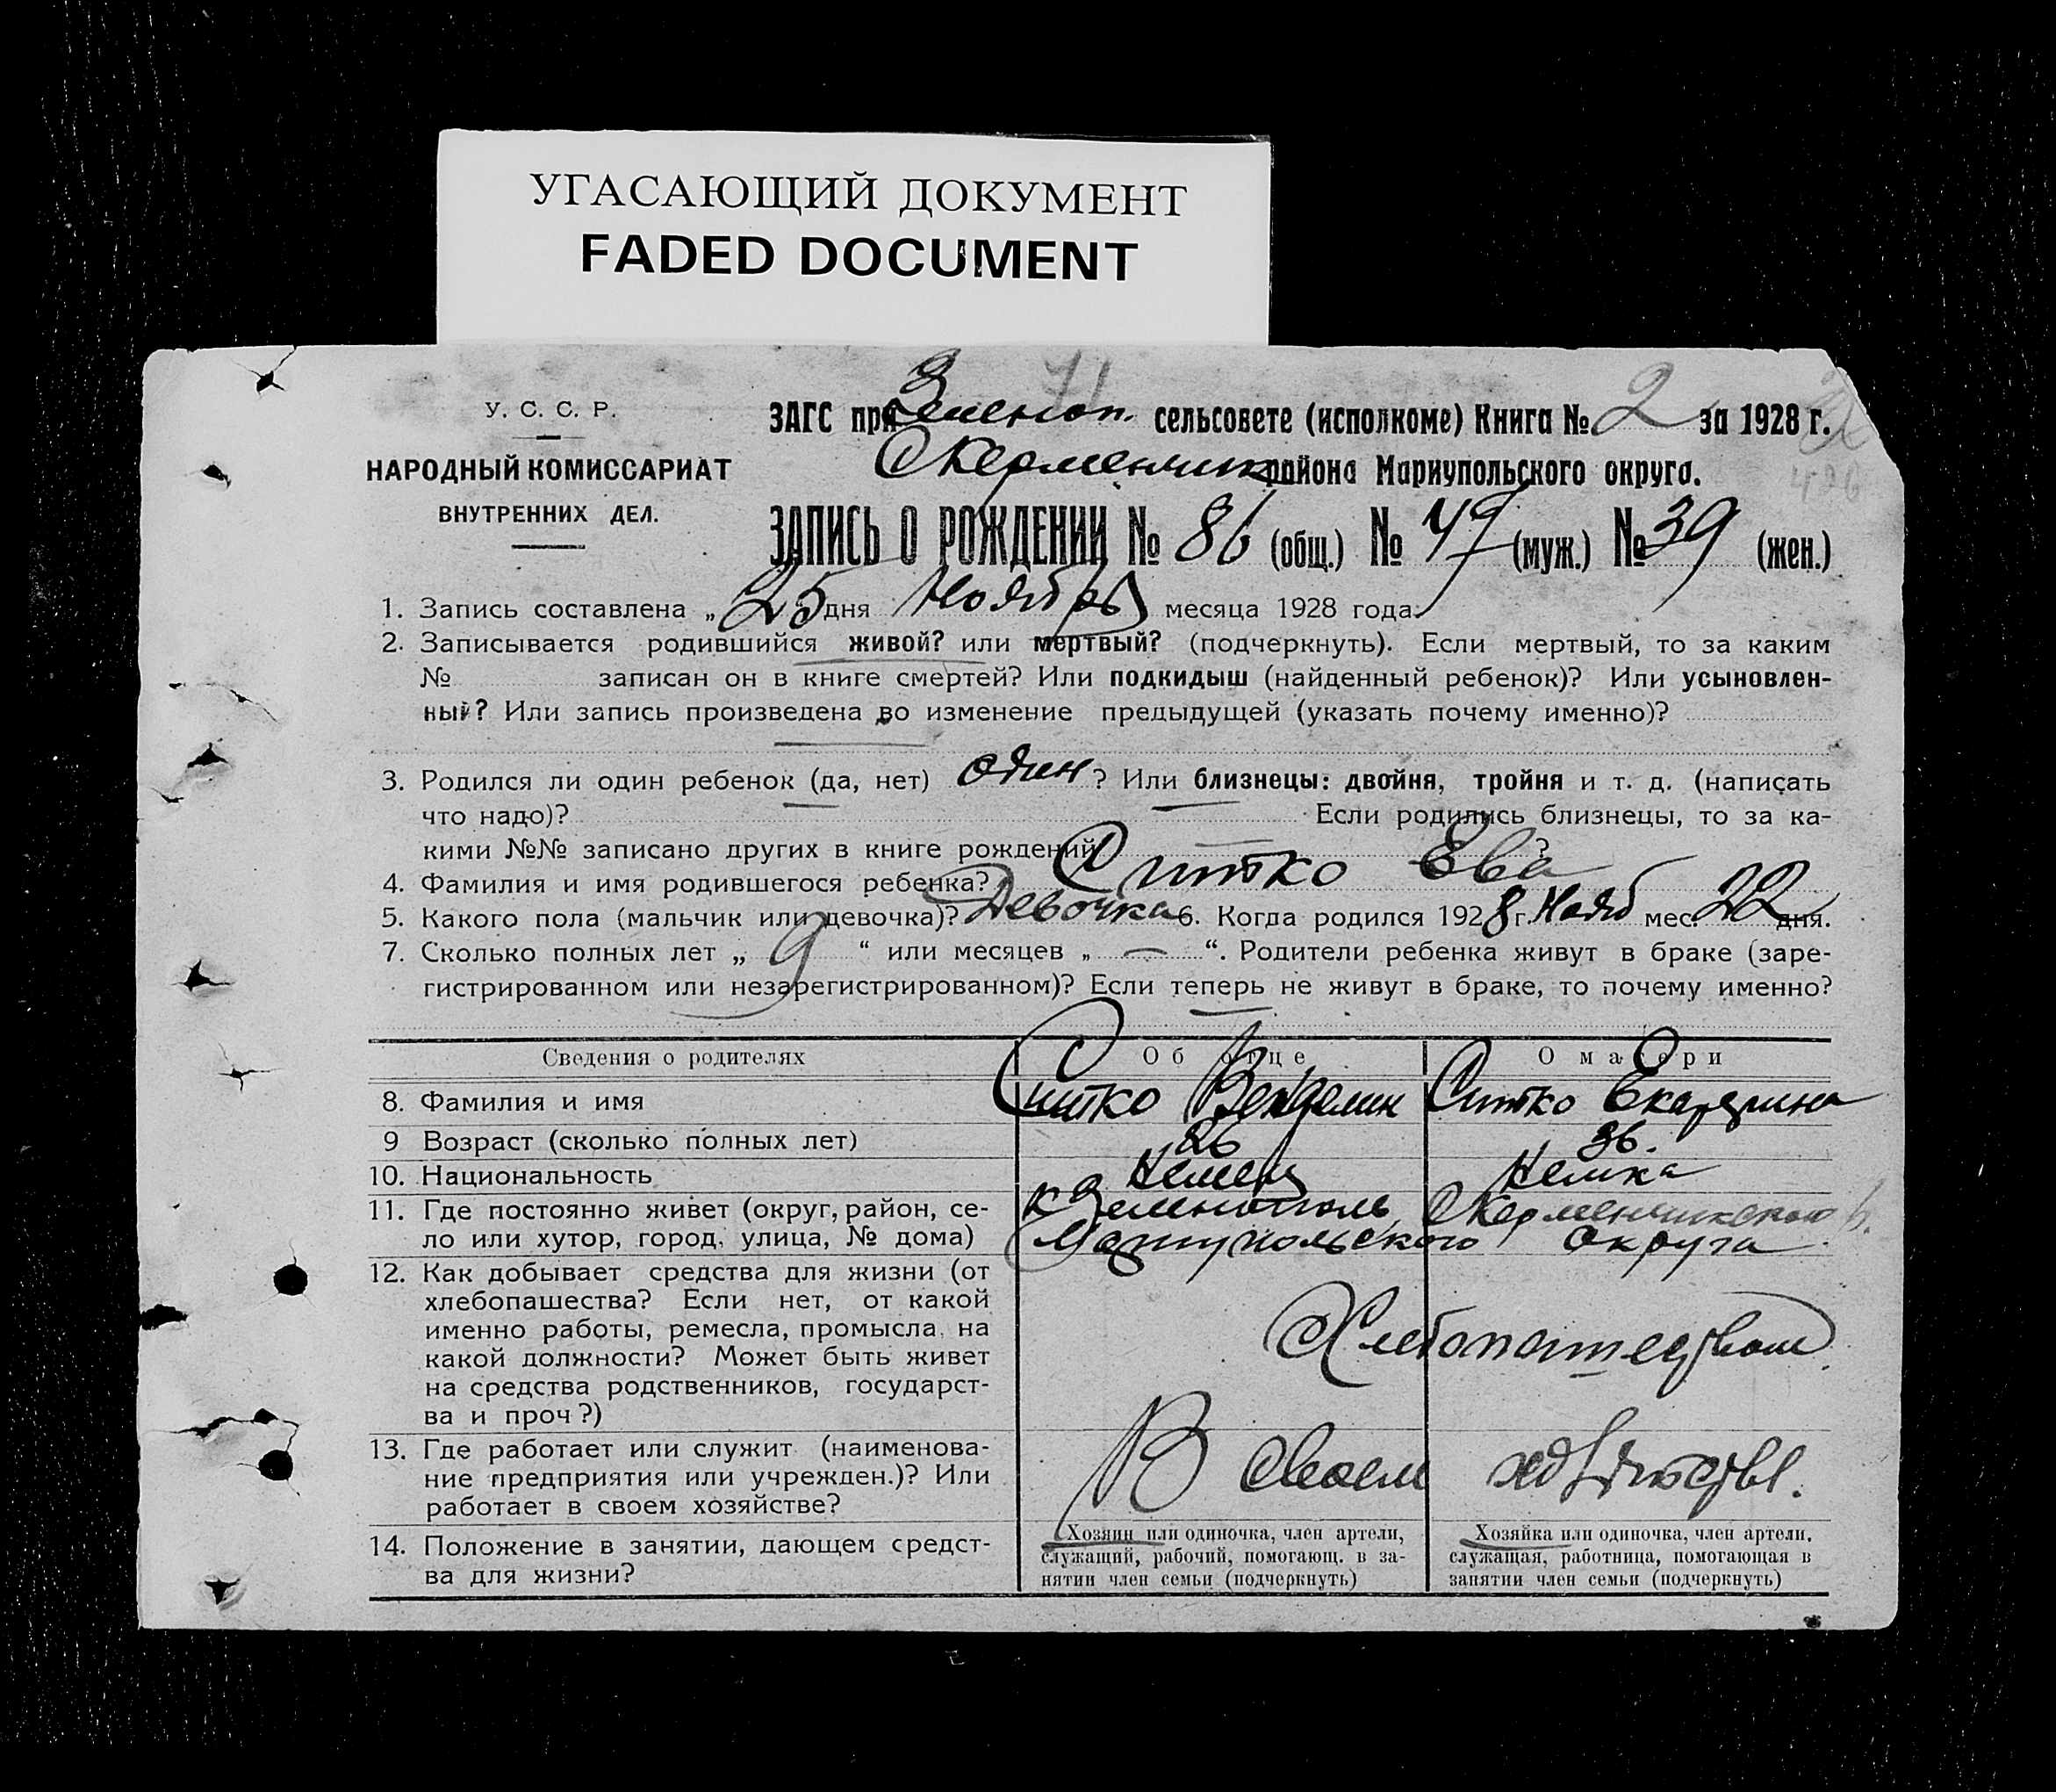 УГАСАЮЩИЙ ДОКУМЕНТ
FADED DOCUMENT
71
У. С. С. Р.
НАРОДНЫЙ КОМИССАРИАТ
ВНУТРЕННИХ ДЕЛ.
ЗАГС при Зеленоп. сельсовете (исполкоме) Книга № 2 за 1928 г.
С Керменчик района Мариупольского округа.
ЗАПИСЬ О РОЖДЕНИИ № 86 (общ.) № 47 (муж.) № 39 (жен.)
1. Запись составлена „ 25 дня Ноябрь месяца 1928 года.
2. Записывается родившийся живой? или мертвый? (подчеркнуть). Если мертвый, то за каким
№ записан он в книге смертей? Или подкидыш (найденный ребенок)? Или усыновлен-
ный? Или запись произведена во изменение предыдущей (указать почему именно)?
3. Родился ли один ребенок (да, нет) один ? Или близнецы: двойня, тройня и т. д. (написать
что надо)? Если родились близнецы, то за ка-
кими №№ записано других в книге рождений ?
4. Фамилия и имя родившегося ребенка? Ситко Ева
5. Какого пола (мальчик или девочка)? Девочка 6. Когда родился 1928 г. Нояб мес. 22 дня.
7. Сколько полных лет „ 9 “ или месяцев „ — “. Родители ребенка живут в браке (заре-
гистрированном или незарегистрированном)? Если теперь не живут в браке, то почему именно?
Сведения о родителях Об отце О матери
8. Фамилия и имя Ситко Венделин Ситко Екатерина
9 Возраст (сколько полных лет) 36.
10. Национальность Немец Немка
11. Где постоянно живет (округ, район, се-
ло или хутор, город, улица, № дома)
к Зеленополь, С Керменчикского р.
Мариупольского округа
12. Как добывает средства для жизни (от
хлебопашества? Если нет, от какой
именно работы, ремесла, промысла, на
какой должности? Может быть живет
на средства родственников, государст-
ва и проч?)
Хлебопашеством.
13. Где работает или служит (наименова-
ние предприятия или учрежден.)? Или
работает в своем хозяйстве?
В своем хозяйстве.
14. Положение в занятии, дающем средст-
ва для жизни?
Хозяин или одиночка, член артели,
служащий, рабочий, помогающ. в за-
нятии член семьи (подчеркнуть)
Хозяйка или одиночка, член артели,
служащая, работница, помогающая в
занятии член семьи (подчеркнуть)